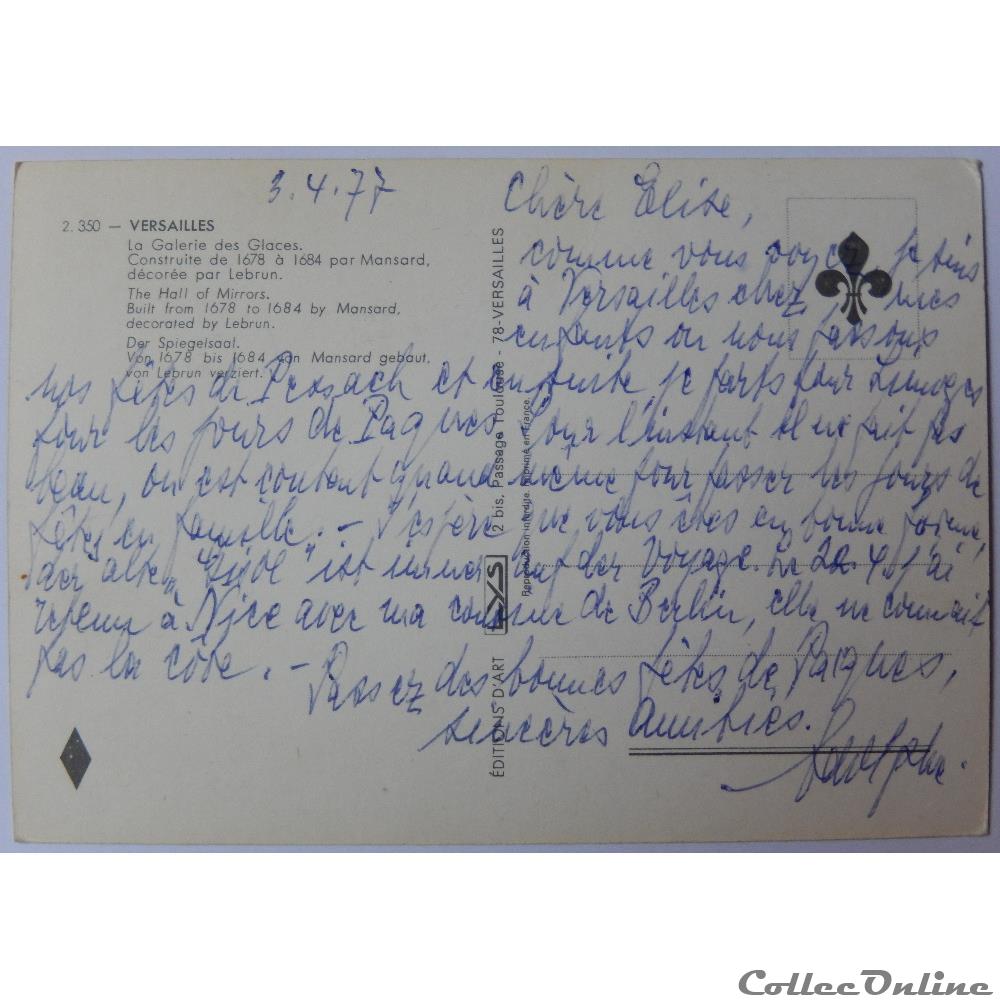 3.4.77
2. 350 — VERSAILLES
La Galerie des Glaces.
Construite de 1678 à 1684 par Mansard,
décorée par Lebrun.
The Hall of Mirrors.
Built from 1678 to 1684 by Mansard,
decorated by Lebrun.
Der Spiegelsaal.
Von 1678 bis 1684 von Mansard gebaut,
von Lebrun verziert.
Chère Elise,
comme vous voyez je suis
à Versailles chez mes
enfants où nous faisons
nos fêtes de Pessach et ensuite je parts pour Limoges
pour les jours de Pâques. Pour l'instant il ne fait pas
beau, on est content quand même pour passer les jours de
fêtes en famille. – J'espère que vous êtes en bonne forme,
der alte " " ist immer auf der Voyage. Le 22.4.
à Nice avec ma cousine de Berlin, elle ne connait
pas la côte. – Passez des bonnes fêtes de Pâques,
sincères Amitiés.
Adolphe.
ÉDITIONS D'ART LYS 2 bis, Passage Toulouse - 78-VERSAILLES
Reproduction interdite. Imprimé en France.
CollecOnline